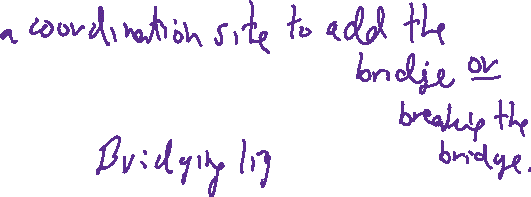 a coordination site to add the
bridge or
breaking the
bridge.
Bridging lig